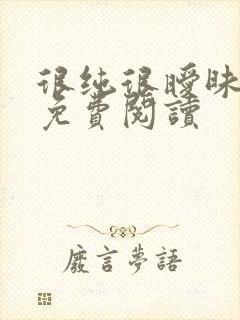 很纯很曖昧
免費閱讀
廢言夢語